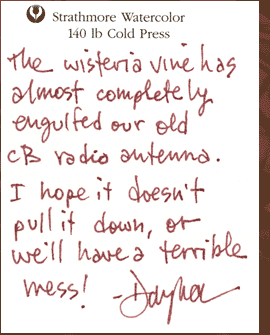 Strathmore Watercolor
140 lb Cold Press
The wisteria vine has
almost completely
engulfed our old
CB radio antenna.
I hope it doesn't
pull it down, or
we'll have a terrible
mess! -Dayna